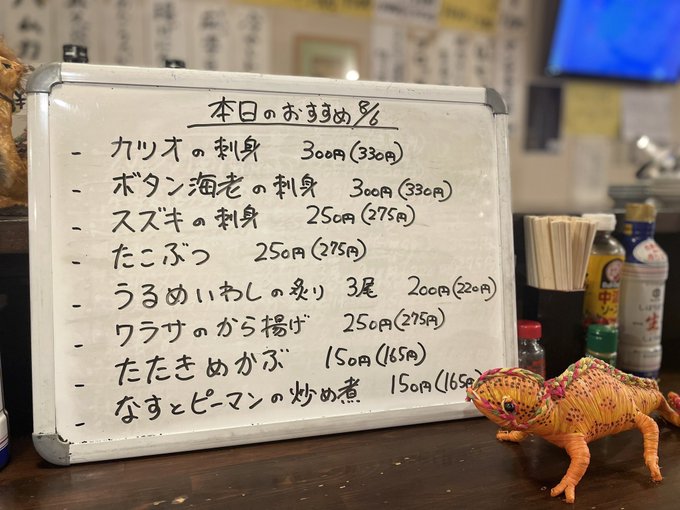 本日のおすすめ 8/6
- カツオの刺身 300円(330円)
- ボタン海老の刺身 300円(330円)
- スズキの刺身 250円(275円)
- たこぶつ 250円(275円)
- うるめいわしの炙り 3尾 200円(220円)
- ワラサのから揚げ 250円(275円)
- たたきめかぶ 150円(165円)
- なすとピーマンの炒め煮 150円(165円
中濃
ソース
生